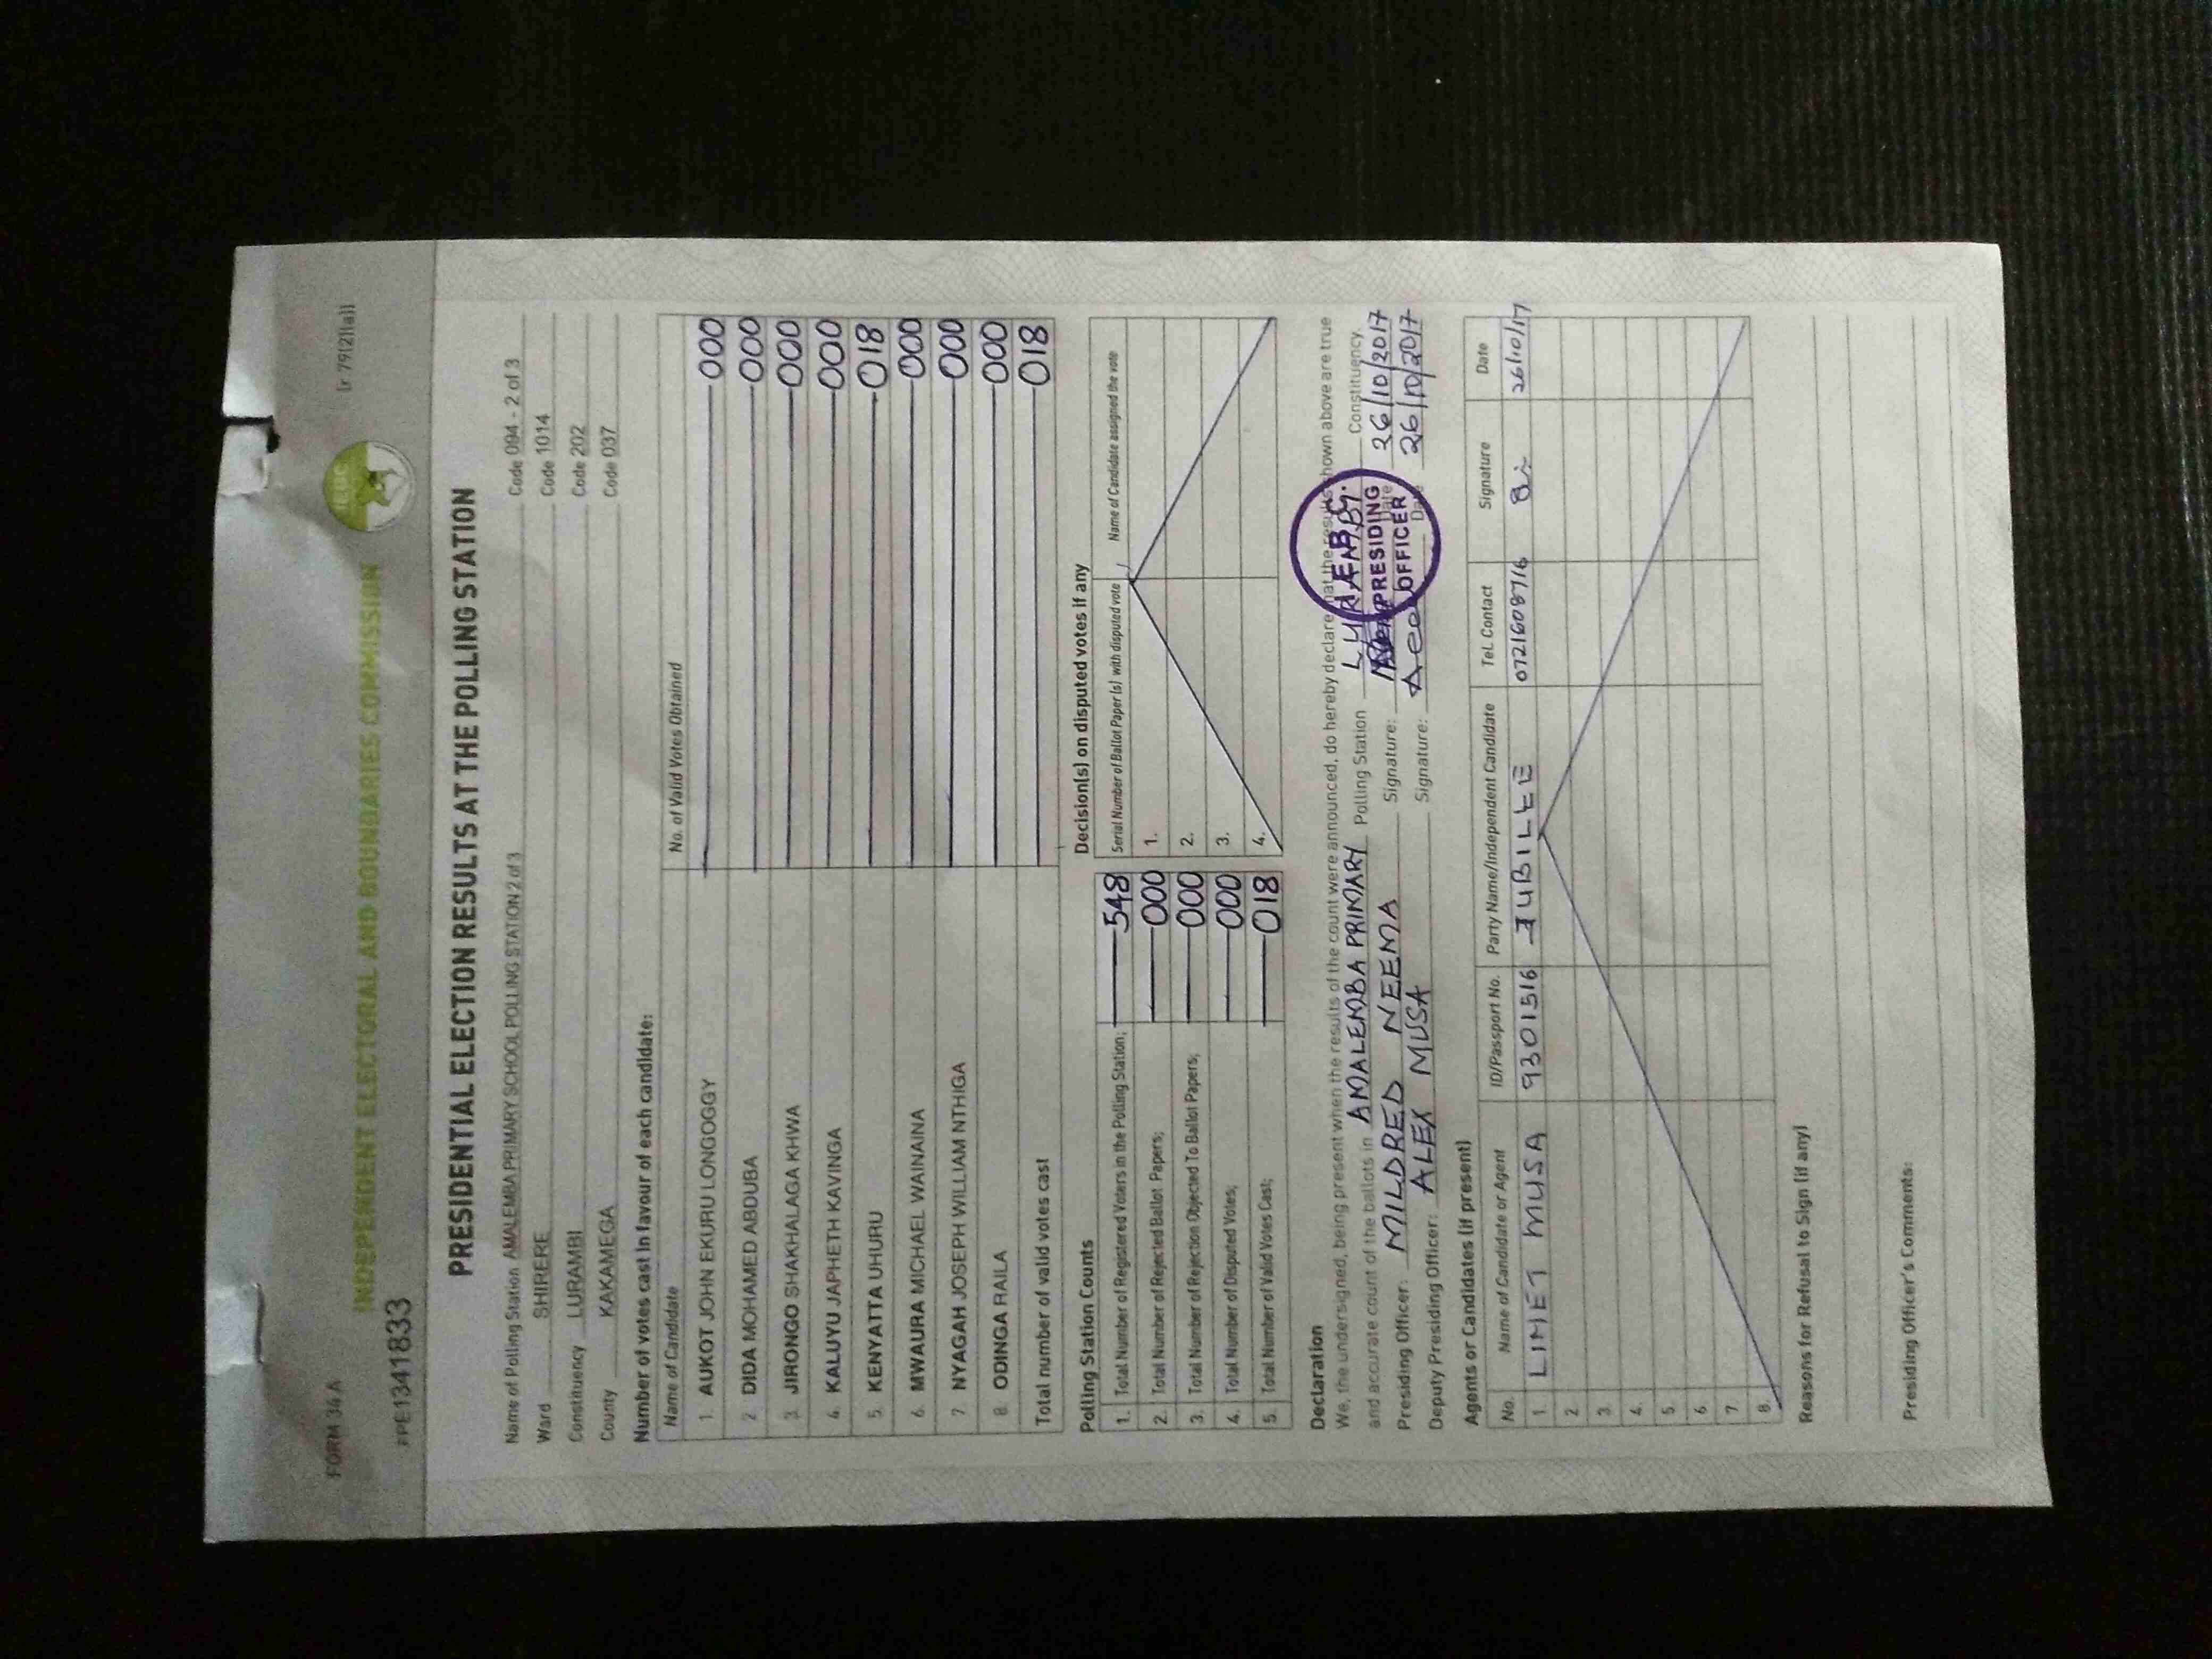 FORM 34 A
(r 79(2)(a))
IEBC
INDEPENDENT ELECTORAL AND BOUNDARIES COMMISSION
PPE1341833
PRESIDENTIAL ELECTION RESULTS AT THE POLLING STATION
Name of Polling Station AMALEMBA PRIMARY SCHOOL POLLING STATION 2 of 3 Code 094 - 2 of 3
Ward SHIRERE Code 1014
Constituency LURAMBI Code 202
County KAKAMEGA Code 037
Number of votes cast in favour of each candidate:
Name of Candidate No. of Valid Votes Obtained
1. AUKOT JOHN EKURU LONGOGGY 000
2 DIDA MOHAMED ABDUBA 000
3. JIRONGO SHAKHALAGA KHWA 000
4. KALUYU JAPHETH KAVINGA 000
5. KENYATTA UHURU 018
6. MWAURA MICHAEL WAINAINA 000
7 NYAGAH JOSEPH WILLIAM NTHIGA 000
8 ODINGA RAILA 000
Total number of valid votes cast 018
Polling Station Counts
1. Total Number of Registered Voters in the Polling Station; 548
2. Total Number of Rejected Ballot Papers; 000
3. Total Number of Rejection Objected To Ballot Papers; 000
4. Total Number of Disputed Votes; 000
5. Total Number of Valid Votes Cast; 018
Decision(s) on disputed votes if any
Serial Number of Ballot Paper (s) with disputed vote Name of Candidate assigned the vote
1.
2.
3.
4.
Declaration
We, the undersigned, being present when the results of the count were announced, do hereby declare that the results shown above are true
and accurate count of the ballots in AMALEMBA PRIMARY Polling Station LURAMBI Constituency.
Presiding Officer: MILDRED NEEMA Signature: Date 26/10/2017
Deputy Presiding Officer: ALEX MUSA Signature: Date 26/10/2017
I.E.B.C.
PRESIDING
OFFICER
Agents or Candidates (if present)
No. Name of Candidate or Agent ID/Passport No. Party Name/Independent Candidate Tel. Contact Signature Date
1. LINET MUSA 9301516 JUBILEE 0721608716 26/10/17
2
3.
4.
5.
6
7.
8.
Reasons for Refusal to Sign (if any)
Presiding Officer's Comments: